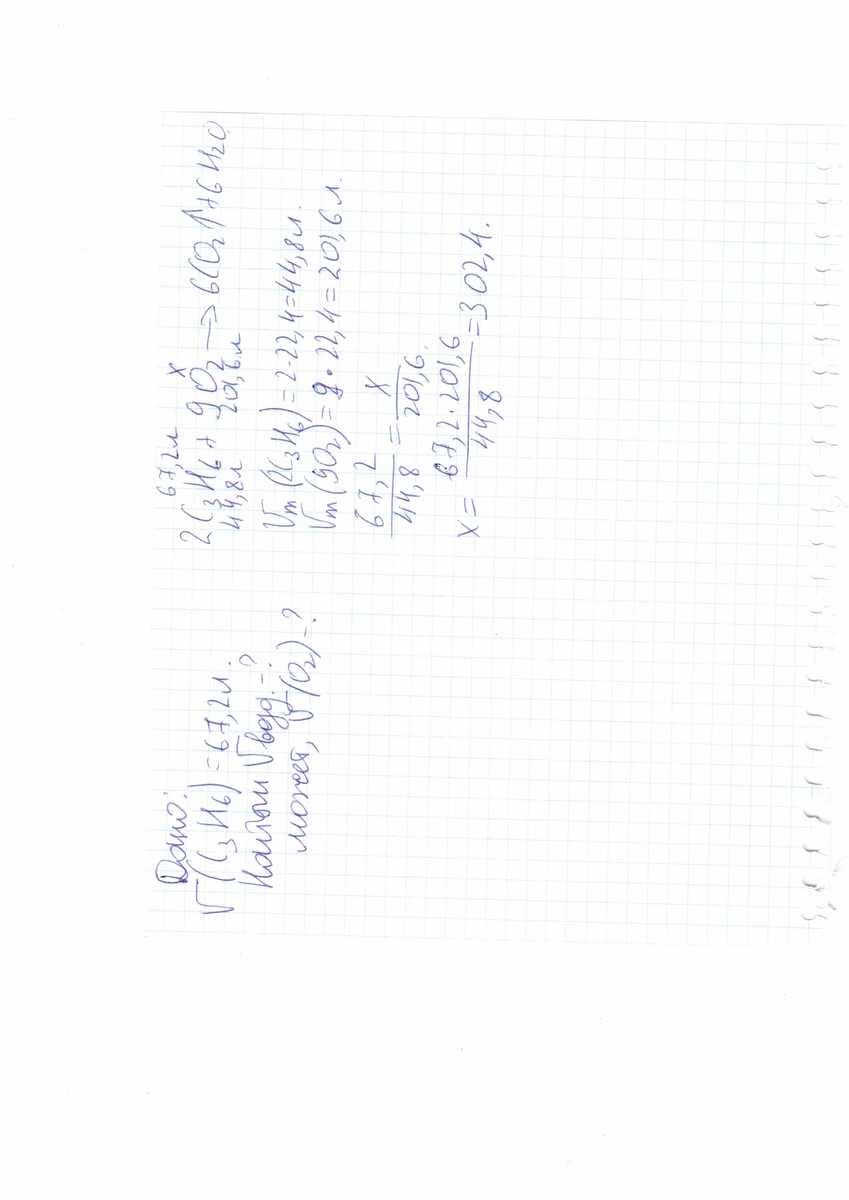 Дано:
V(C3H6)=67,2л.
Найти Vвозд.-?
может, V(O2)-?
67,2л x
2C3H6+ 9O2 —> 6CO2↑+6H2O
44,8л 201,6л
Vm(2C3H6)=2·22,4=44,8л.
Vm(9O2)=9·22,4=201,6л.
67,2/44,8 = x/201,6.
x= 67,2·201,6/44,8 =302,4.